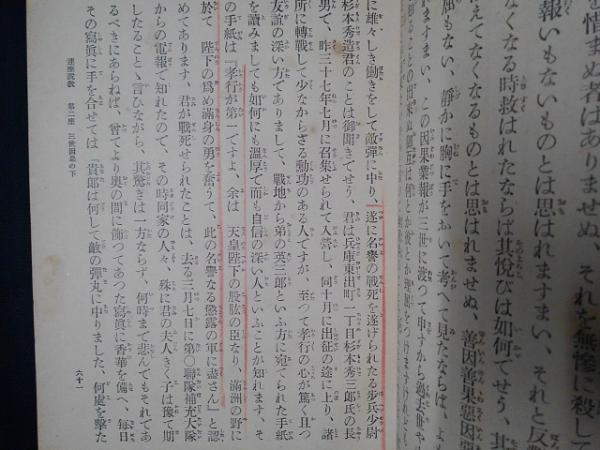 報いもないものとは思はれますまい、それと反
なくなる時救はれたならば其悦びは如何でせう、其
えてなくなるものとは思はれませぬ、善因善果惡因惡
ますまい、この因果業報が三世に渡つて申すから過去世や
屈もない、靜かに胸に手をおいて考へて見たならば、よく
に雄々しき働きをして敵彈に中り、遂に名譽の戰死を遂げられたる步兵少尉
杉本秀造君のことは御聞きでせう、君は兵庫東出町一丁目杉本秀三郎氏の長
男で、昨三十七年七月に召集せられて入營し、同十月に出征の途に上り、諸
所に轉戰して少なからざる勳功のある人ですが、至つて孝行の心が篤く且つ
友誼の深い方でありまして、戰地から弟の英三郎といふ方に宛てられた手紙
を讀みましても如何にも溫厚で而も自信の深い人といふことが知れます、そ
の手紙は『孝行が第一ですよ、余は 天皇陛下の股肱の臣なり、滿洲の野に
於て 陛下の爲め滿身の勇を奮うて、此の名譽なる懲露の軍に盡さん』と認
めてあります、君が戰死せられたことは、去る三月七日に第〇聯隊補充大隊
からの電報で知れたので、その時同家の人々、殊に君の夫人きく子は豫て期
したることゝ言ひながら、其驚きは一方ならず、何時まで悲んでもそれであ
るべきにあらねば、曾てより奧の間に飾つてあつた寫眞に香華を備へ、毎日
その寫眞に手を合せては『貴郞は何して敵の彈丸に中りました、何處を擊た
連座說敎 第二座 三世因果の下
六十一